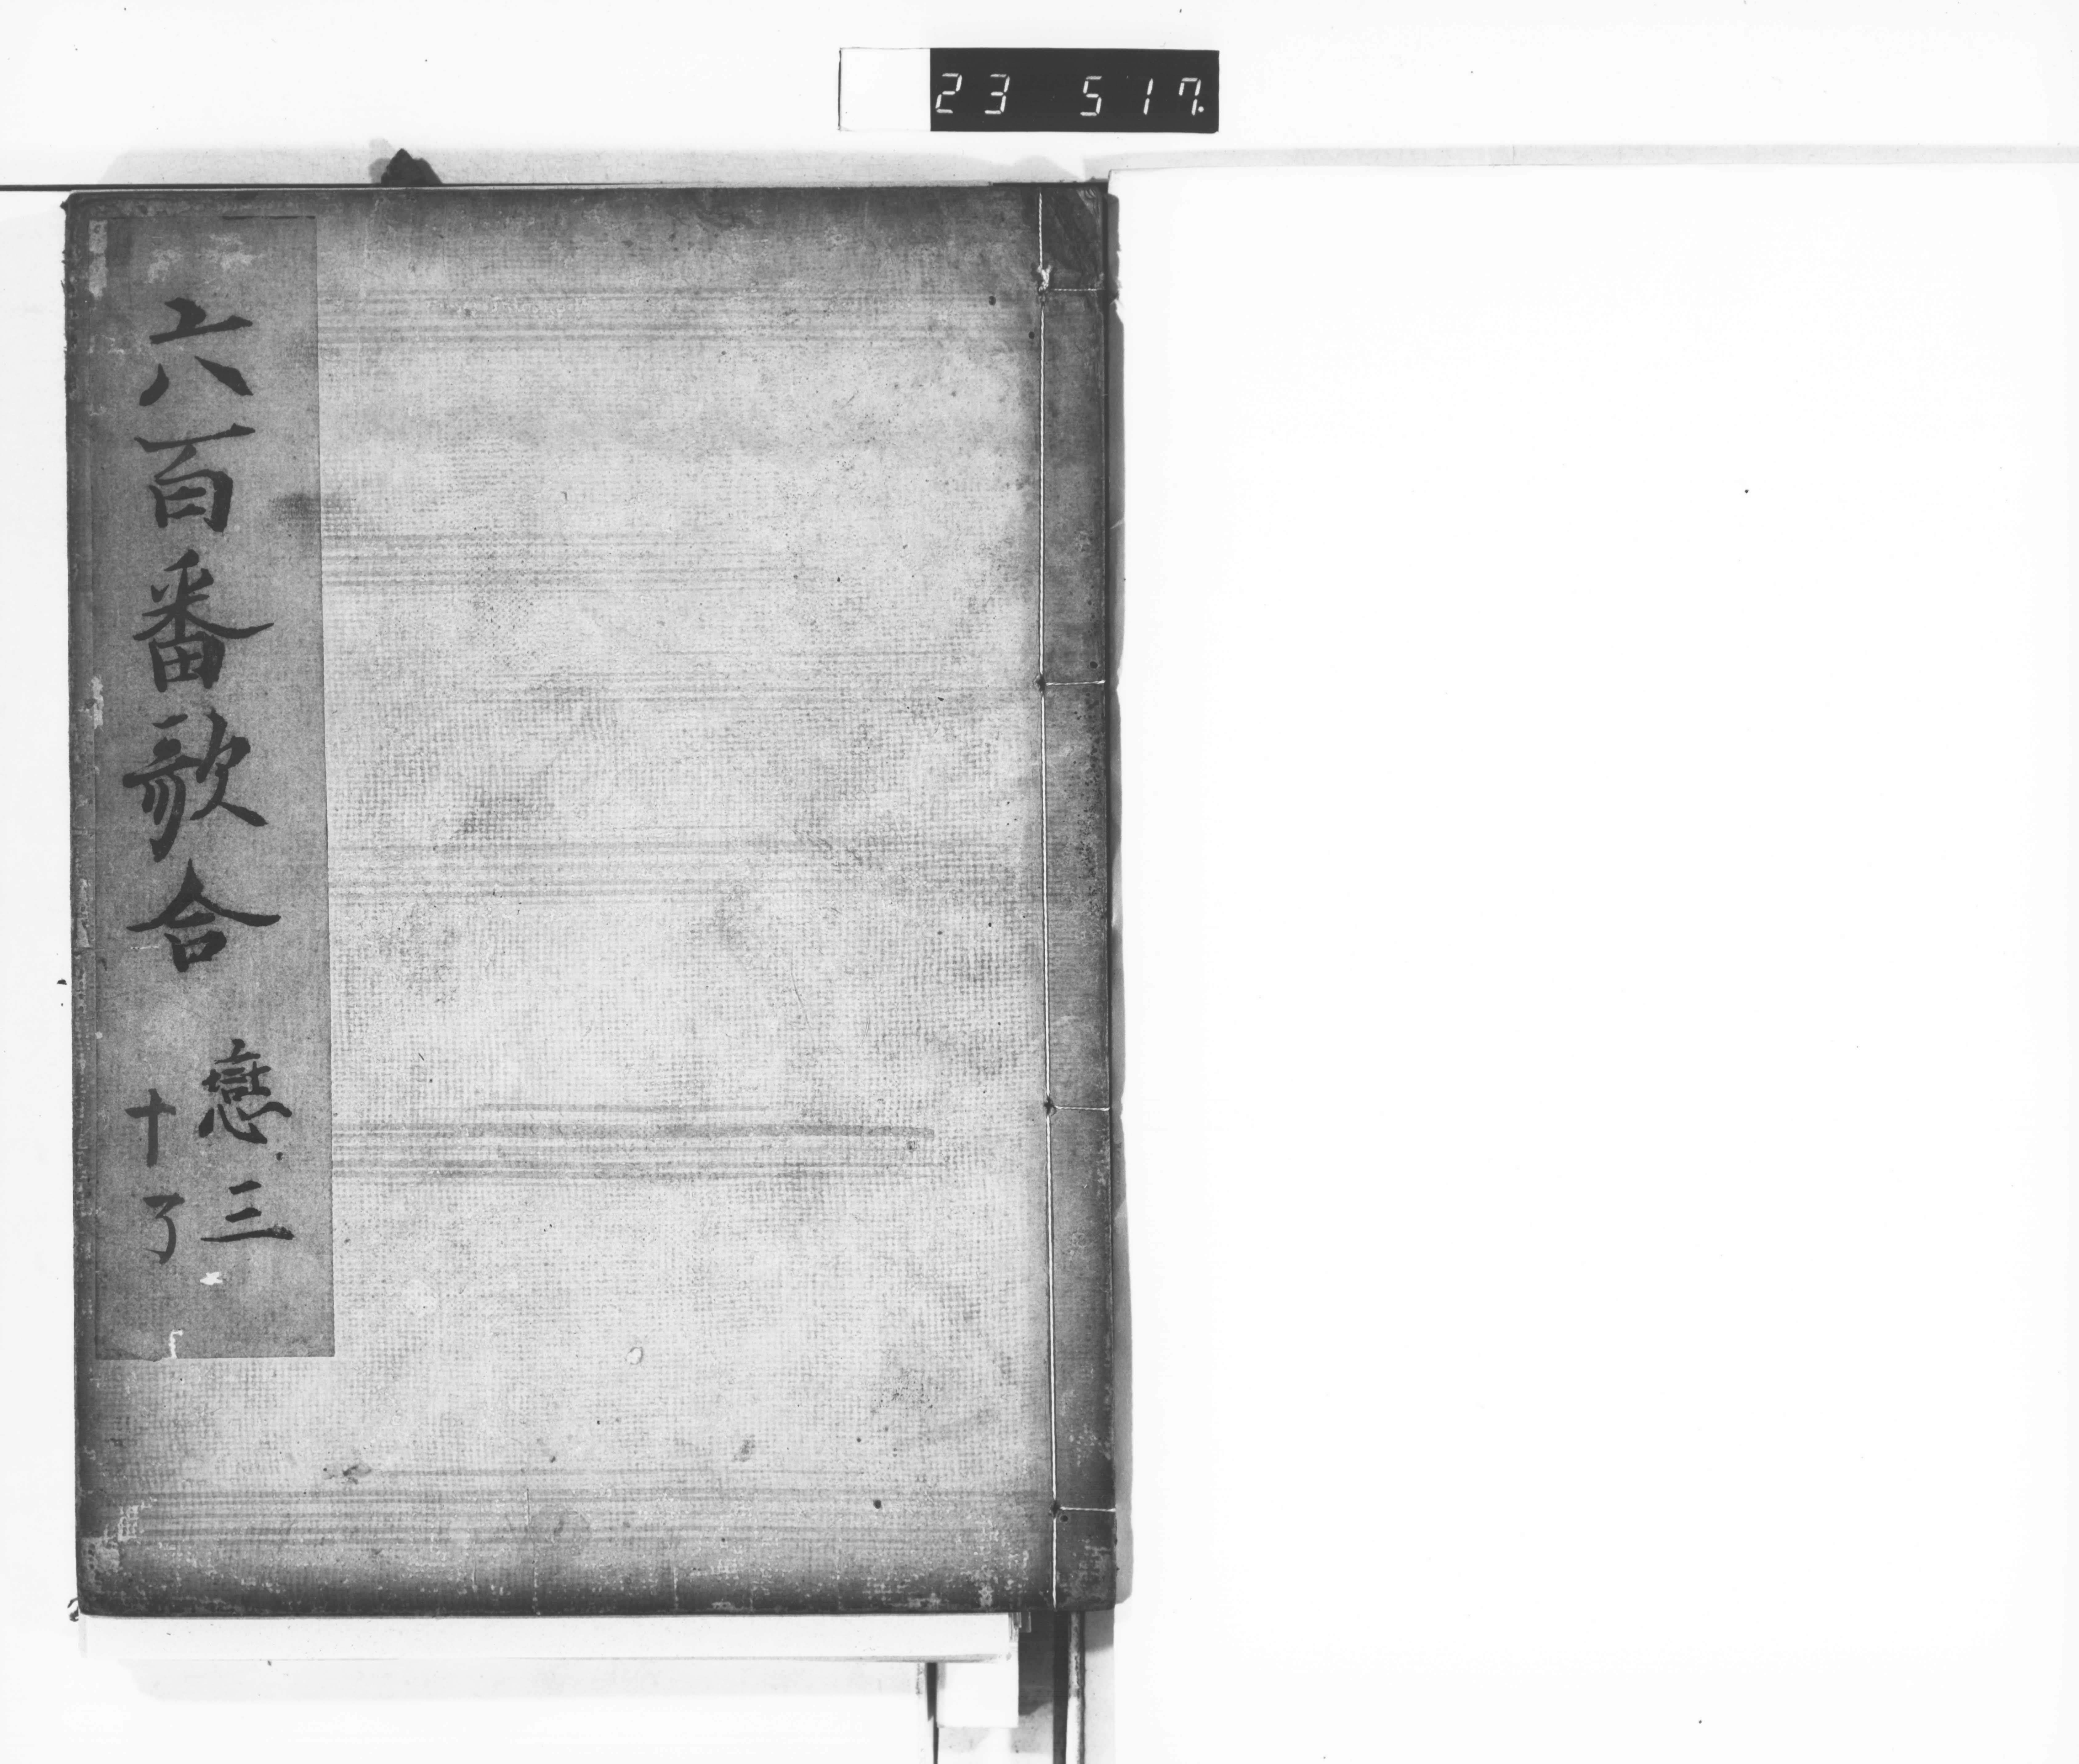 23 517.
六百番歌合
戀三
十了